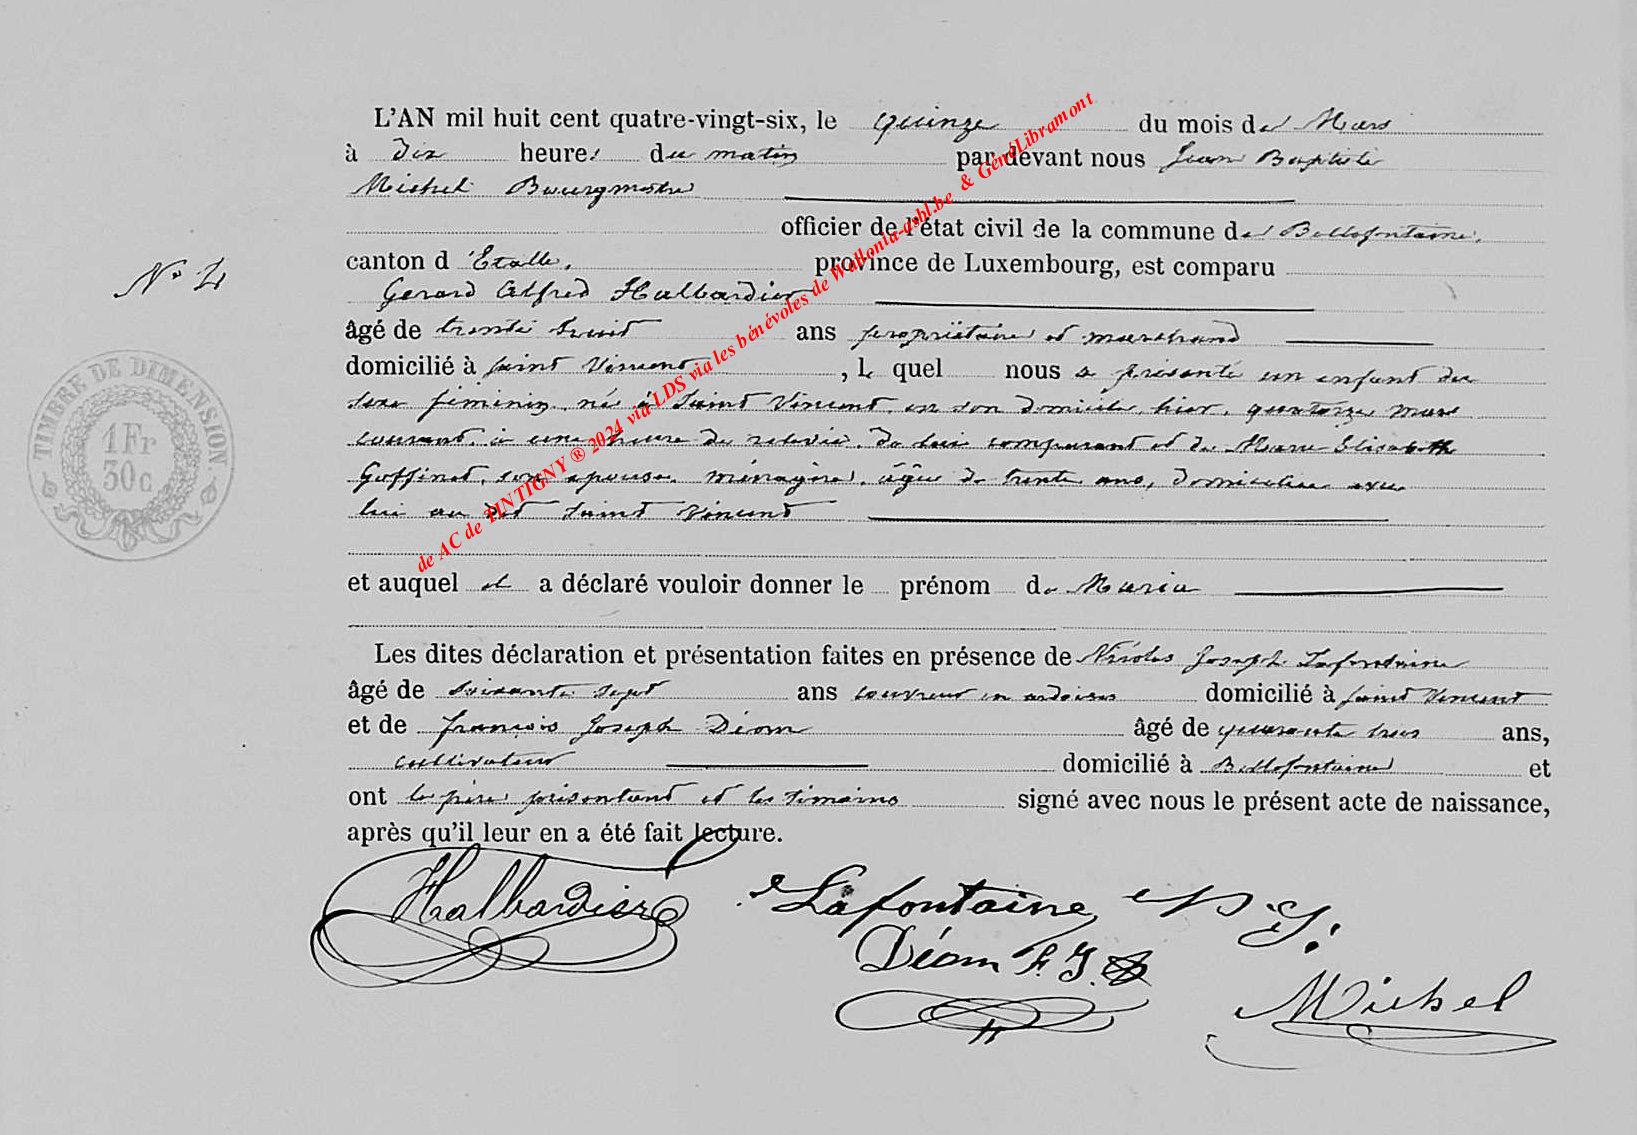 L'AN mil huit cent quatre-vingt-six, le quinze du mois de Mars
à dix heures du matin par devant nous Jean Baptiste
Michel Bourgmestre
officier de l'état civil de la commune de Bellefontaine,
canton d'Etalle, province de Luxembourg, est comparu
Gerard Alfred Halbardier
âgé de trente huit ans propriétaire et marchand
domicilié à Saint Vincent, Le quel nous a présenté un enfant du
sexe féminin, né à Saint Vincent, en son domicile, hier, quatorze mars
courant, à une heure de relevée, de lui comparant et de Marie Elisabeth
Goffinet, son épouse, ménagère, âgée de trente ans, domiciliée avec
lui au dit Saint Vincent
et auquel il a déclaré vouloir donner le prénom de Maria
Les dites déclaration et présentation faites en présence de Nicolas Joseph Lafontaine
âgé de soixante sept ans couvreur en ardoises domicilié à Saint Vincent
et de François Joseph Déom âgé de quarante trois ans,
cultivateur domicilié à Bellefontaine et
ont le père présentant et les témoins signé avec nous le présent acte de naissance,
après qu'il leur en a été fait lecture.
Halbardier Lafontaine, N. J.
Déom F. J.
Michel
N° 4
TIMBRE DE DIMENSION.
1 Fr
30 c
de AC de TINTIGNY ® 2024 via LDS via les bénévoles de Wallonia-asbl.be & GenéLibramont